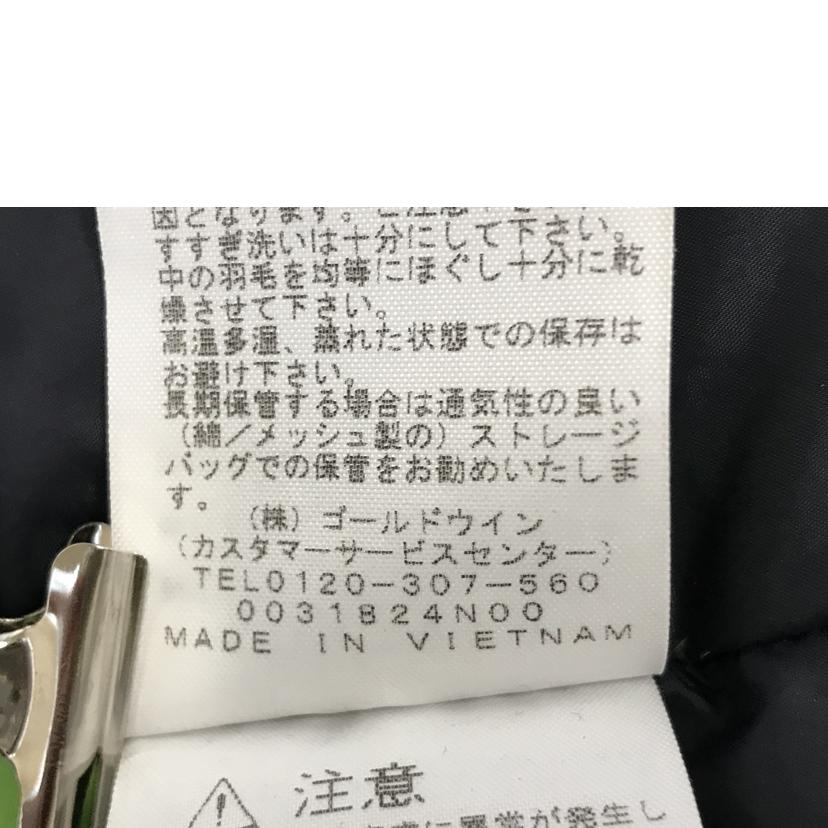 因となります。ご注意下さい。
すすぎ洗いは十分にして下さい。
中の羽毛を均等にほぐし十分に乾
燥させて下さい。
高温多湿、蒸れた状態での保存は
お避け下さい。
長期保管する場合は通気性の良い
（綿／メッシュ製の）ストレージ
バッグでの保管をお勧めいたしま
す。
（株）ゴールドウイン
（カスタマーサービスセンター）
TEL0120-307-560
0031824N00
MADE IN VIETNAM
注意
に異常が発生し